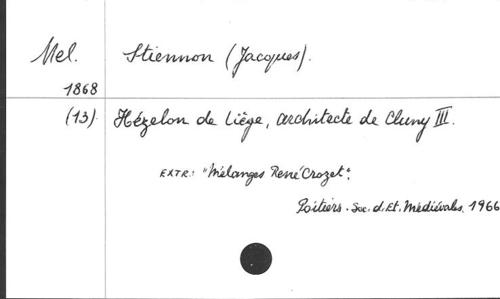 Mel. Stiennon (Jacques).
1868
(13). Hézelon de Liège, architecte de Cluny III.
EXTR: "Mélanges René Crozet".
Poitiers. Soc. d. Et. Médiévales, 1966